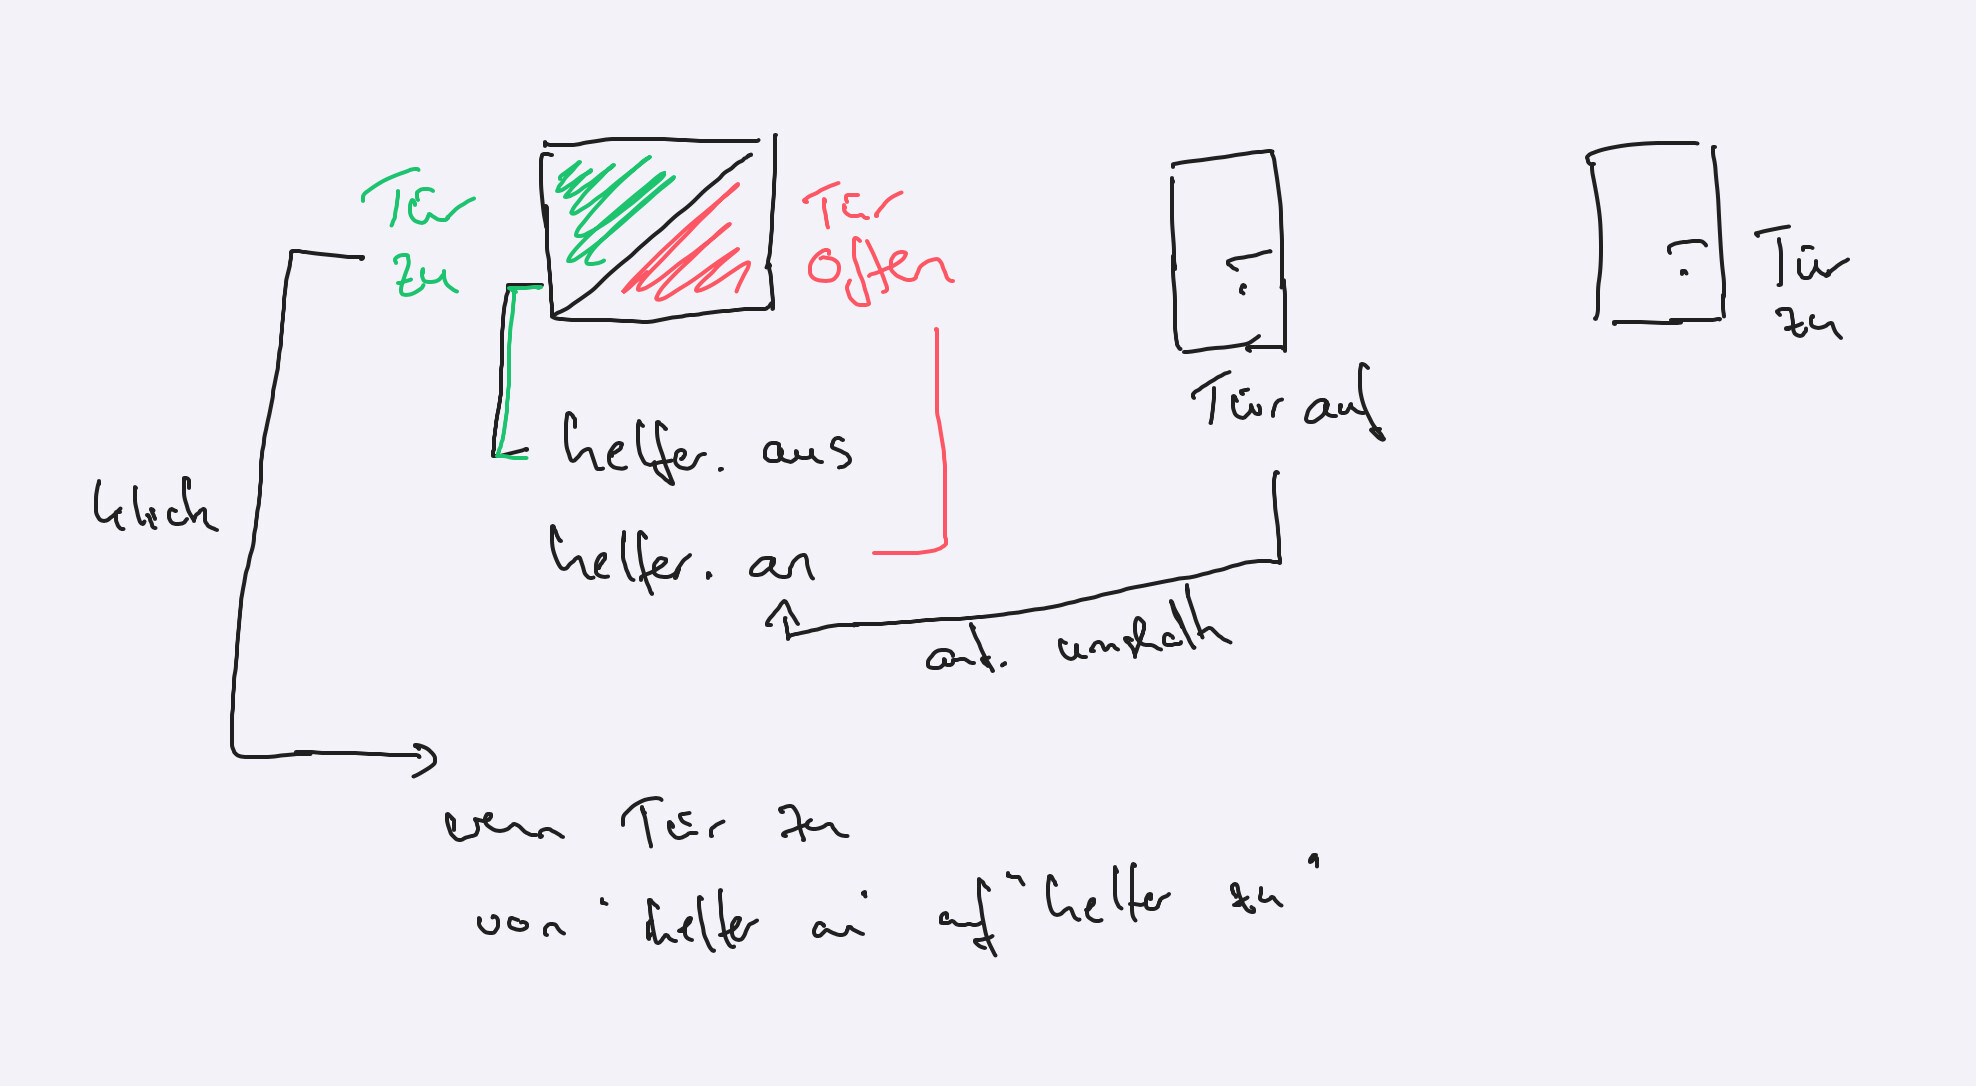 Tür
zu
Tür
offen
Tür
zu
Tür auf
helfer. aus
klick
helfer. an
aut. umschalt
wenn Tür zu
von "helfer an" auf "helfer zu"